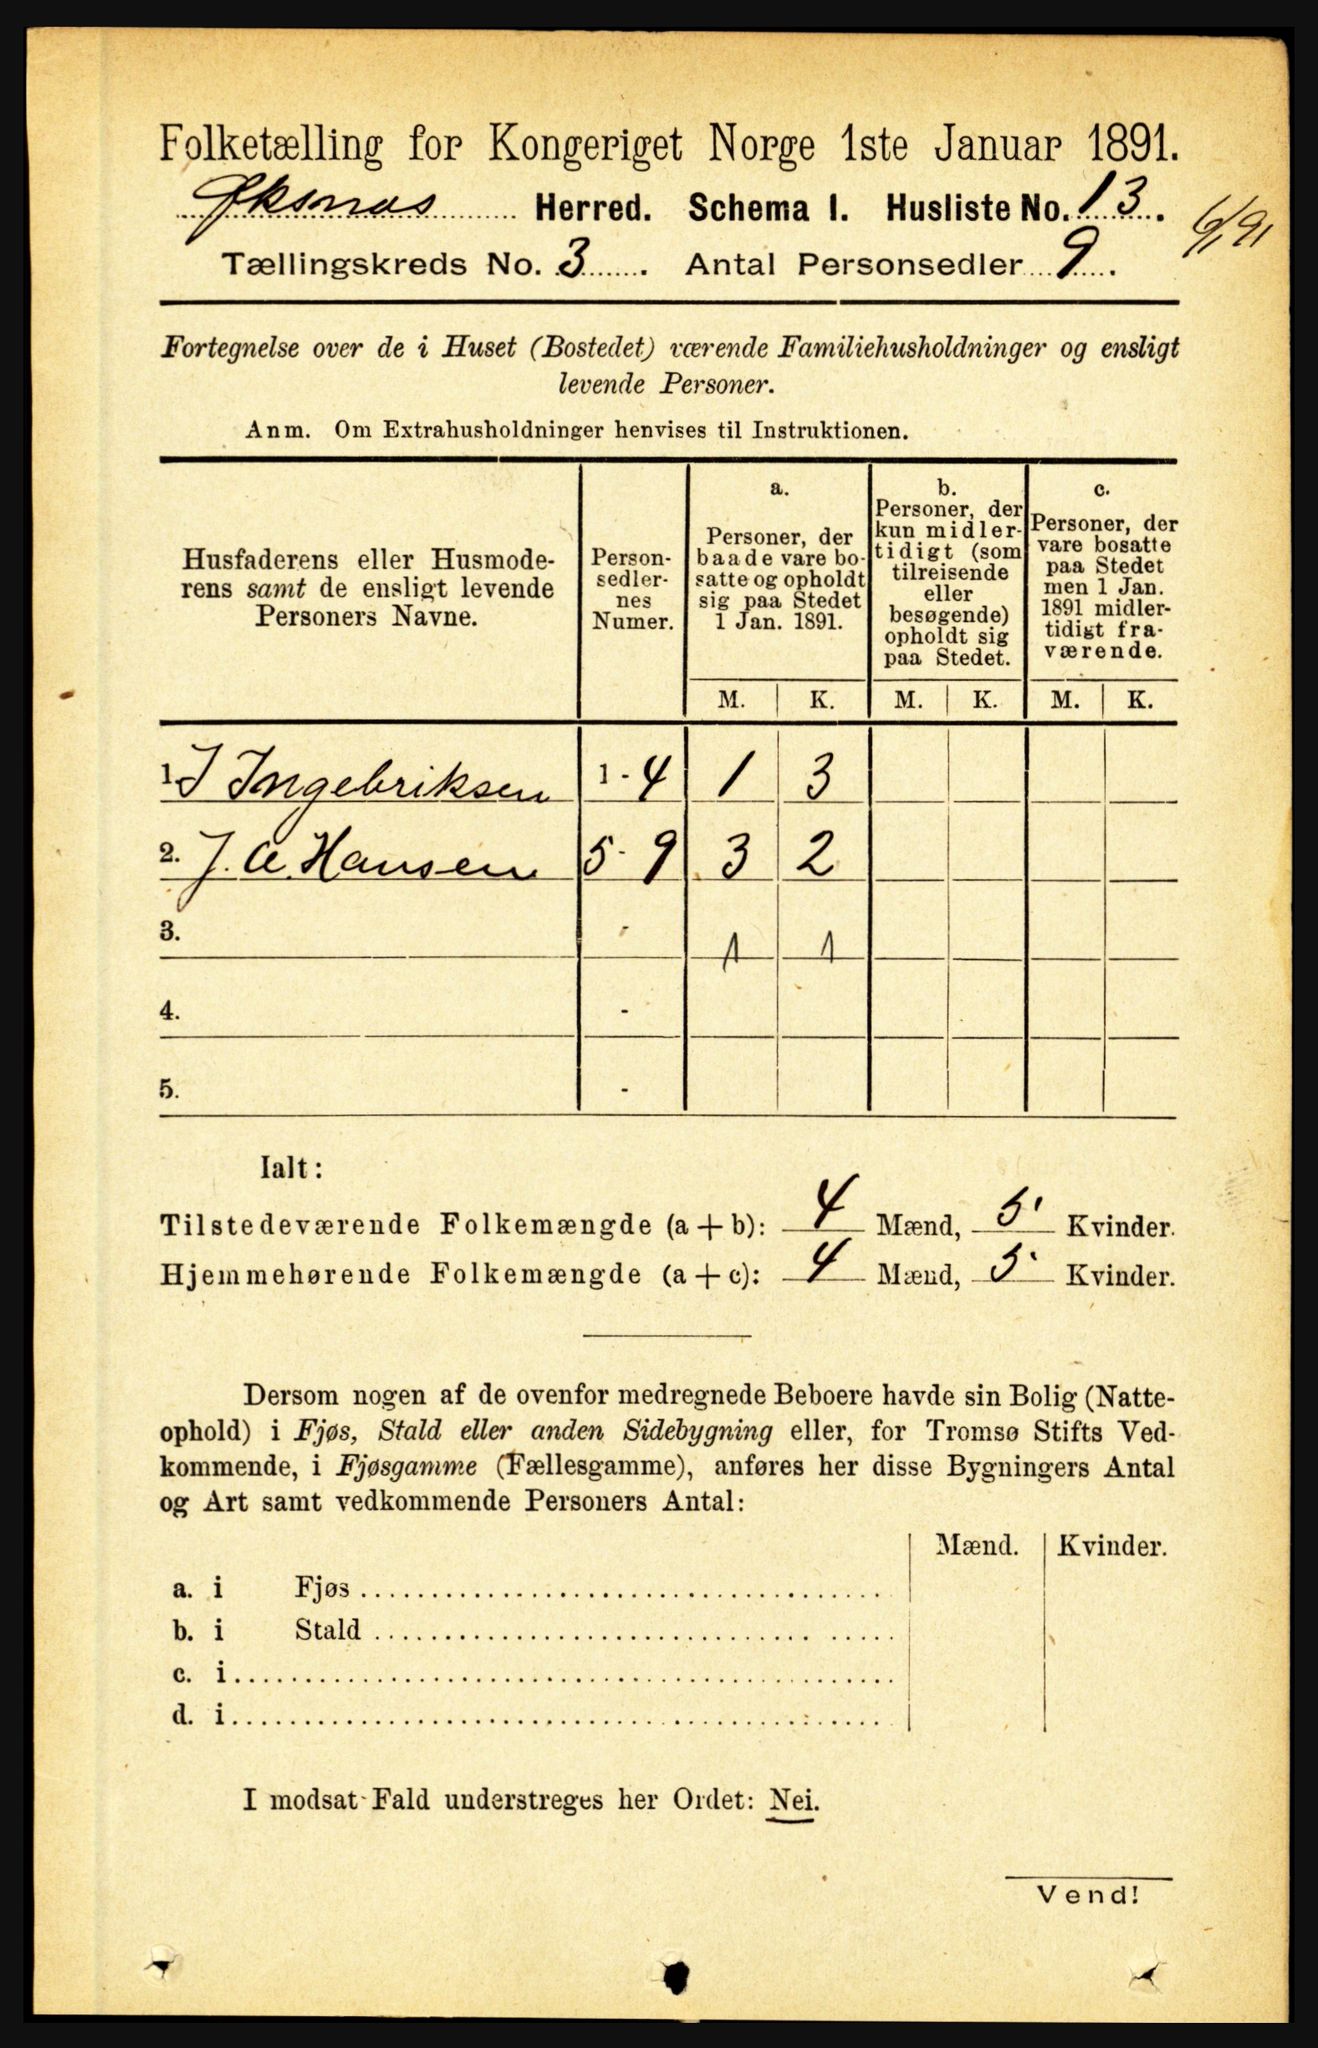 Folketælling for Kongeriget Norge 1ste Januar 1891.
Øksnæs Herred. Schema I. Husliste No. 13.
6/1 91
Tællingskreds No. 3. Antal Personsedler 9.
Fortegnelse over de i Huset (Bostedet) værende Familiehusholdninger og ensligt
levende Personer.
Anm. Om Extrahusholdninger henvises til Instruktionen.
Husfaderens eller Husmode-
rens samt de ensligt levende
Personers Navne.
Person-
sedler-
nes
Numer.
a.
Personer, der
baade vare bo-
satte og opholdt
sig paa Stedet
1 Jan. 1891.
b.
Personer, der
kun midler-
tidigt (som
tilreisende
eller
besøgende)
opholdt sig
paa Stedet.
c.
Personer, der
vare bosatte
paa Stedet
men 1 Jan.
1891 midler-
tidigt fra-
værende.
M. K. M. K. M. K.
1. J Ingebriksen 1 - 4 1 3
2. J. A. Hansen 5 - 9 3 2
3. - 1 1
4. -
5. -
Ialt:
Tilstedeværende Folkemængde (a + b): 4 Mænd, 5 Kvinder.
Hjemmehørende Folkemængde (a + c): 4 Mænd, 5 Kvinder.
Dersom nogen af de ovenfor medregnede Beboere havde sin Bolig (Natte-
ophold) i Fjøs, Stald eller anden Sidebygning eller, for Tromsø Stifts Ved-
kommende, i Fjøsgamme (Fællesgamme), anføres her disse Bygningers Antal
og Art samt vedkommende Personers Antal:
Mænd. Kvinder.
a. i Fjøs
b. i Stald
c. i
d. i
I modsat Fald understreges her Ordet: Nei.
Vend!